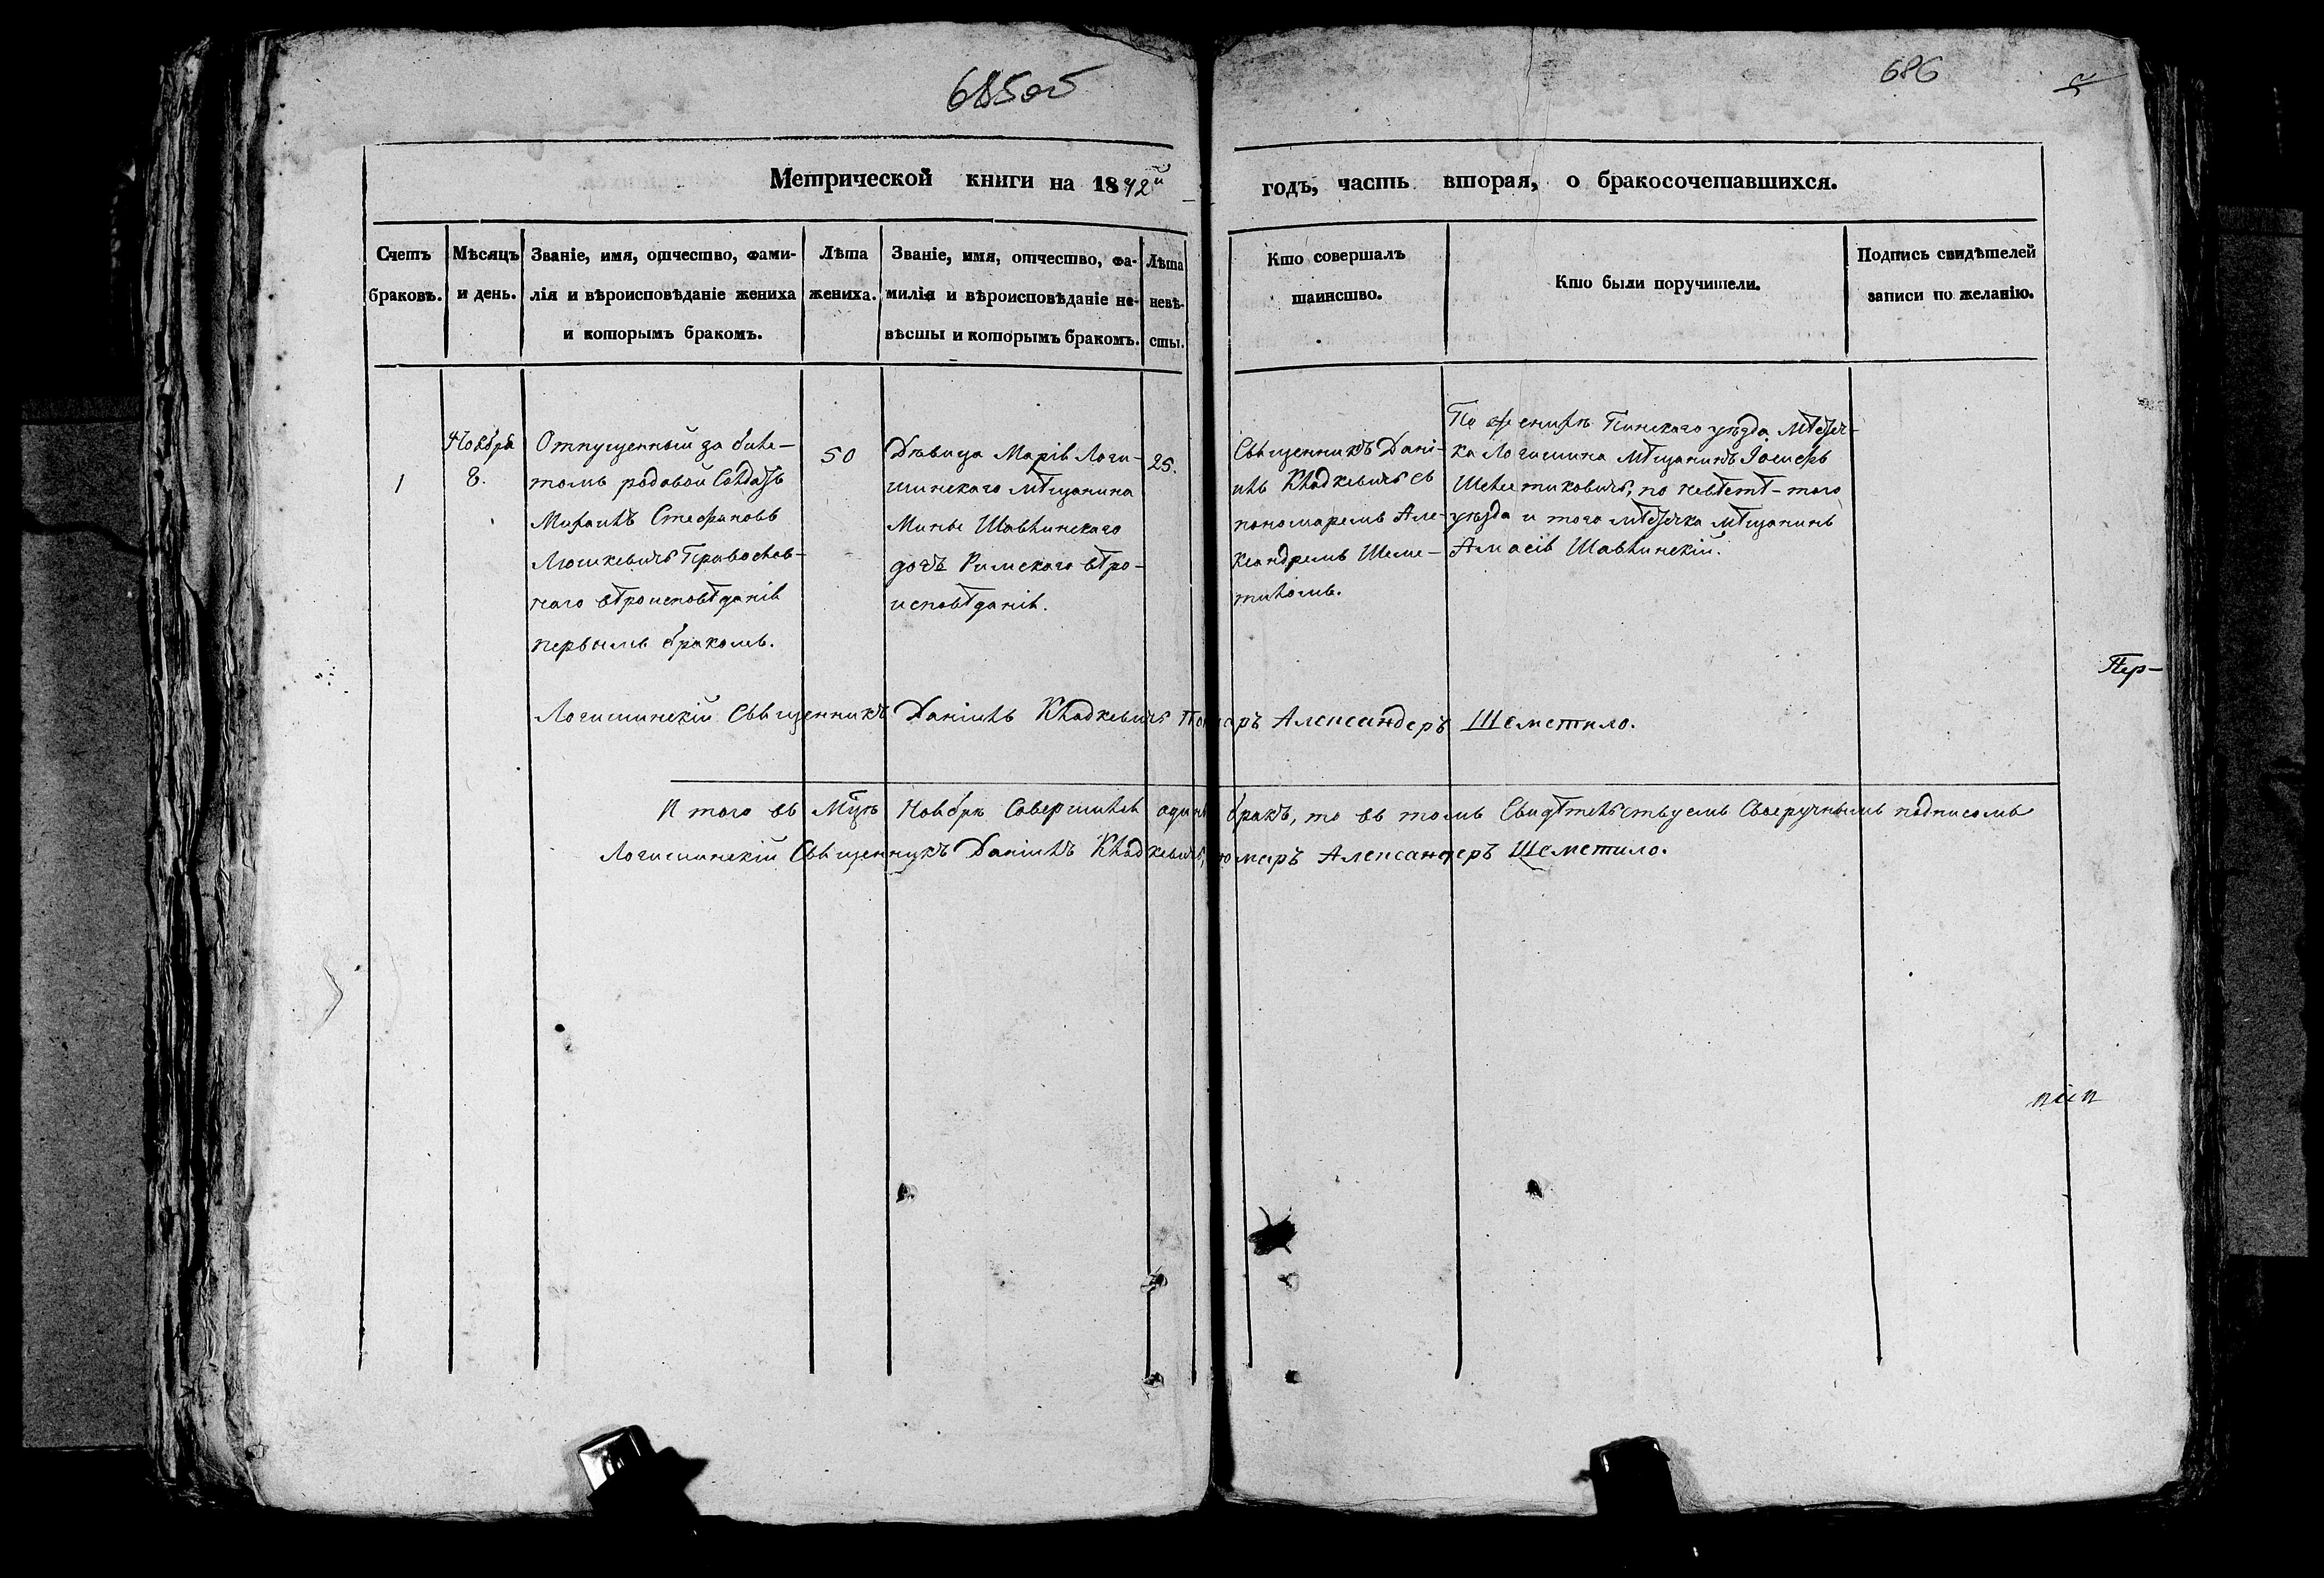 685об
686
Метрической книги на 1842й годъ, часть вторая, о бракосочетавшихся.
Счетъ
браковъ.
Мѣсяцъ
и день.
Званіе, имя, отчество, фами-
лія и вѣроисповѣданіе жениха
и которымъ бракомъ.
Лѣта
жениха.
Званіе, имя, отчество, фа-
милія и вѣроисповѣданіе не-
вѣсты и которымъ бракомъ.
Лѣта
невѣ-
сты.
Кто совершалъ
таинство.
Кто были поручители.
Подпись свидѣтелей
записи по желанію.
1
Ноября
8.
Отпущенный за биле-
томъ рядовой Солдатъ
Михаилъ Стефановъ
Люшкевичъ Православ-
наго вѣроисповѣданія
первымъ бракомъ.
50
Дѣвица Марія Логи-
шинскаго мѣщанина
Шавлинскаго
дочь Римского вѣро-
исповѣданія.
25.
Священникъ Дані-
илъ Кладкевичъ съ
пономаремъ Але-
ксандремъ Шеме-
тиломъ.
По женихѣ Пинскаго уѣзда Мѣстеч-
ка Логишина мѣщанинъ Іосифъ
по невѣстѣ - того
уѣзда и того мѣстечка мѣщанинъ
Шавлинскій.
Пер-
Логишинскій Священникъ Даніилъ Кладкевичъ Александеръ Шеметило.
И того въ Мцѣ Ноябрѣ Совершился одинъ бракъ, то въ томъ Свидѣтельствуемъ Своеручнымъ подписомъ
Логишинскій Священникъ Даніилъ Кладкевичъ, Александеръ Шеметило.